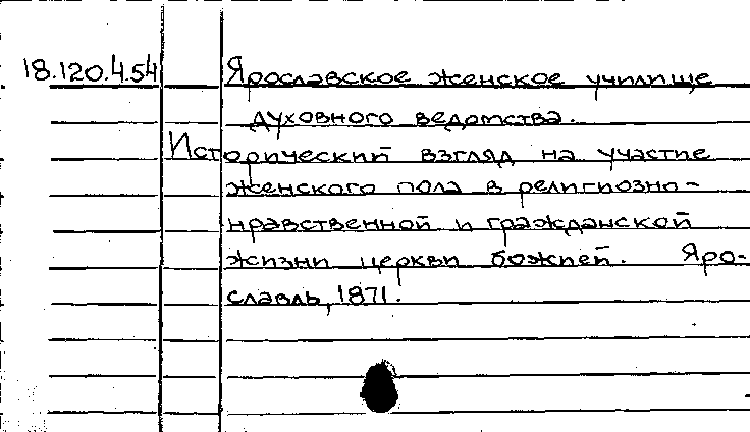 18.120.4.54 Ярославское женское училище
духовного ведомства.
Исторический взгляд на участие
женского пола в религиозно-
нравственной и гражданской
жизни церкви божией. Яро-
славль, 1871.